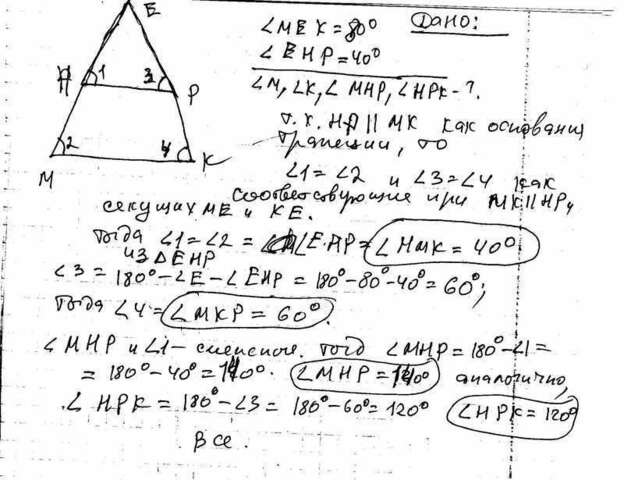 E
∠MEK = 80° Дано:
∠EHP = 40°
H 1 3 P
∠M, ∠K, ∠MHP, ∠HPK - ?
т.к. HP || MK как основания
трапеции, то
2 4
M K
∠1 = ∠2 и ∠3 = ∠4 как
соответствующие при MK || HP и
секущих ME и KE.
Тогда ∠1 = ∠2 = ∠EHP = ∠HMK = 40°
из ΔEHP
∠3 = 180° - ∠E - ∠EHP = 180° - 80° - 40° = 60°;
Тогда ∠4 = ∠MKP = 60°.
∠MHP и ∠1 - смежные. Тогд ∠MHP = 180° - ∠1 =
= 180° - 40° = 140°. ∠MHP = 140° аналогично,
∠HPK = 180° - ∠3 = 180° - 60° = 120° ∠HPK = 120°
Все.